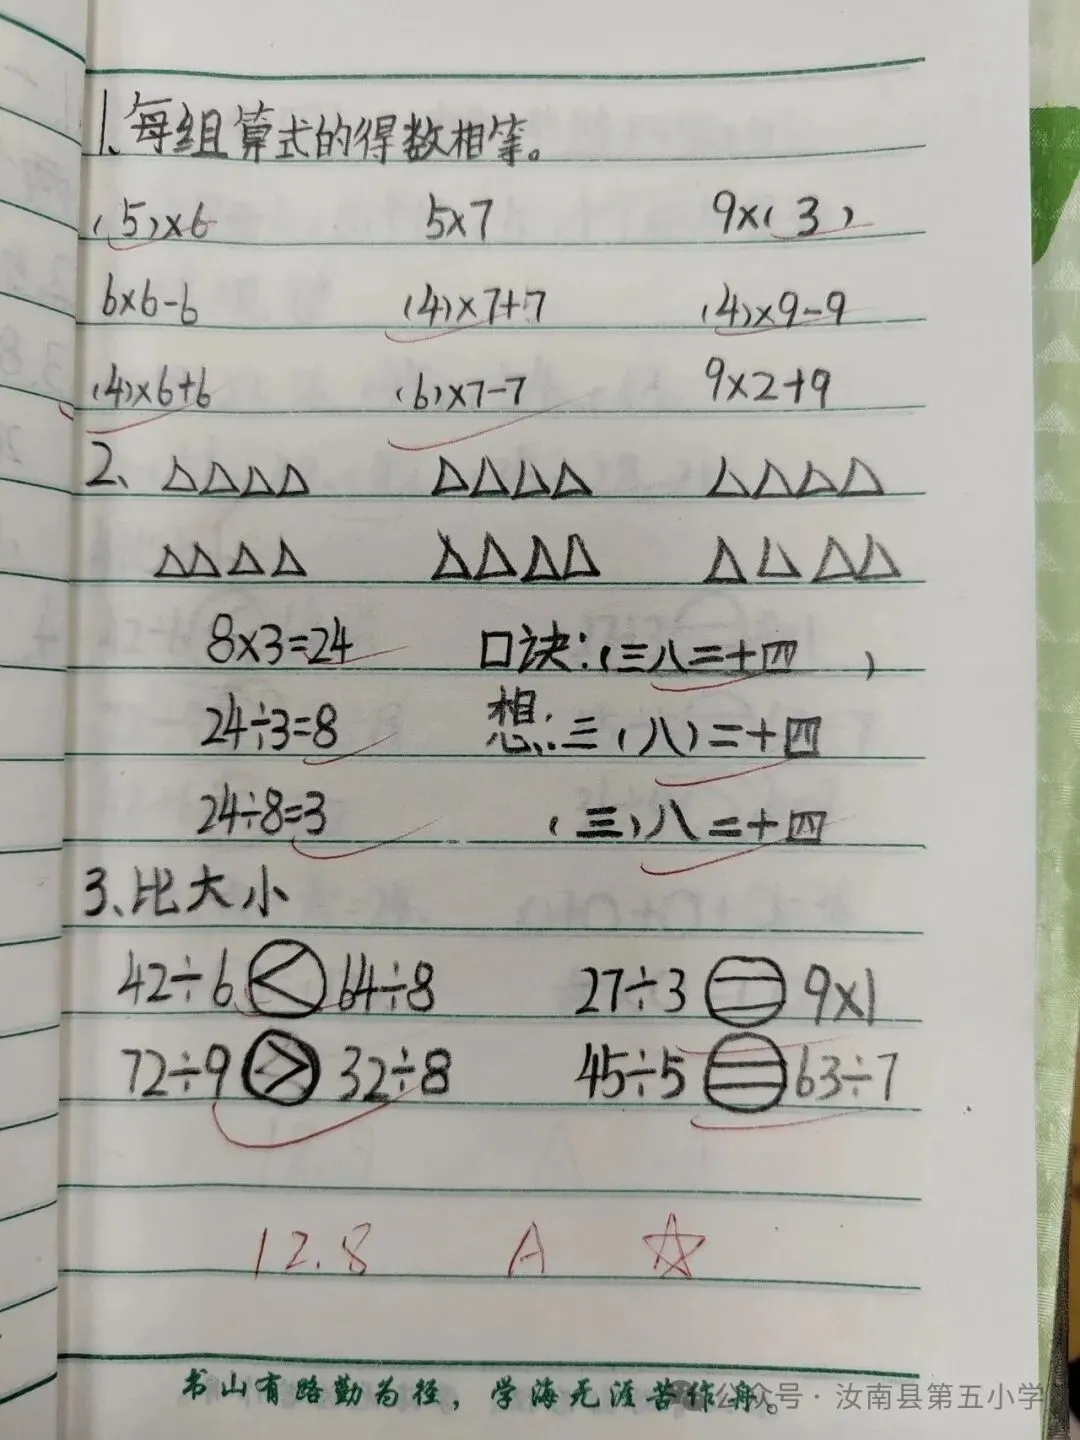 1、每组算式的得数相等。
(5)×6 5×7 9×(3)
6×6-6 (4)×7+7 (4)×9-9
(4)×6+6 (6)×7-7 9×2+9
2、△△△△ △△△△ △△△△
△△△△ △△△△ △△△△
8×3=24 口诀:(三八二十四)
24÷3=8 想:三(八)二十四
24÷8=3 (三)八二十四
3、比大小
42÷6<64÷8 27÷3=9×1
72÷9>32÷8 45÷5=63÷7
12.8 A ☆
书山有路勤为径，学海无涯苦作舟。
公众号·汝南县第五小学